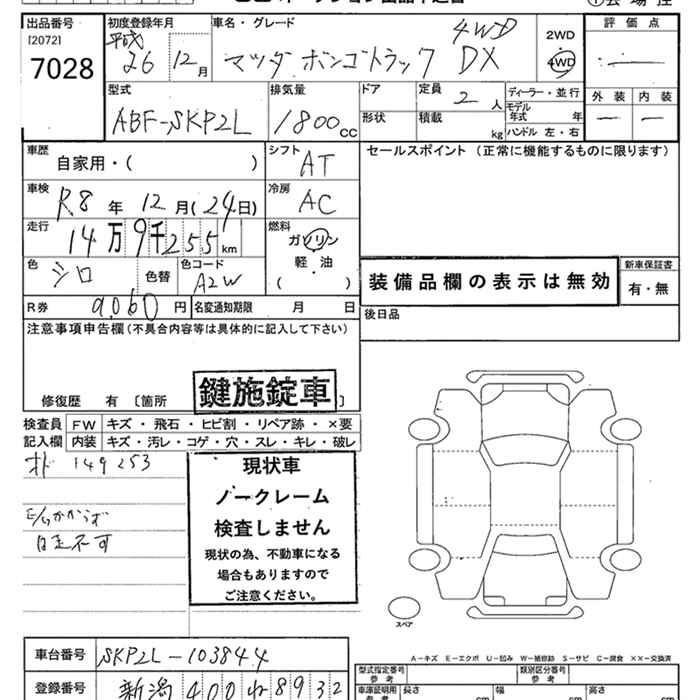 出品番号
[2072]
7028
初度登録年月
平成
26 12月
車名・グレード
マツダ ボンゴトラック 4WD DX
2WD
4WD
評価点
外装 内装
型式
ABF-SKP2L
排気量
1800cc
ドア
形状
定員 2人
積載 kg
ディーラー・並行
モデル年式 年
ハンドル 左・右
車歴
自家用・( )
シフト
AT
セールスポイント (正常に機能するものに限ります)
車検
R8年 12月(24日)
冷房
AC
走行
14万9千255km
燃料
ガソリン
軽・油
( )
色
シロ
色替
色コード
A2W
装備品欄の表示は無効
新車保証書
有・無
R券 9,060円
名変通知期限 月 日
後日品
注意事項申告欄(不具合内容等は具体的に記入して下さい)
修復歴 有〔箇所
鍵施錠車
検査員記入欄
FW キズ・飛石・ヒビ割・リペア跡・×要
内装 キズ・汚レ・コゲ・穴・スレ・キレ・破レ
オド 149253
E/gかからず
自走不可
現状車
ノークレーム
検査しません
現状の為、不動車になる
場合もありますので
ご注意ください。
スペア
A-キズ E-エクボ U-凹み W-補修跡 S-サビ C-腐食 ××-交換済
車台番号 SKP2L-103844
登録番号 新潟 400 ね 8932
型式指定番号 参考
類別区分番号 参考
車庫証明用 参考
長さ cm
幅 cm
高さ cm